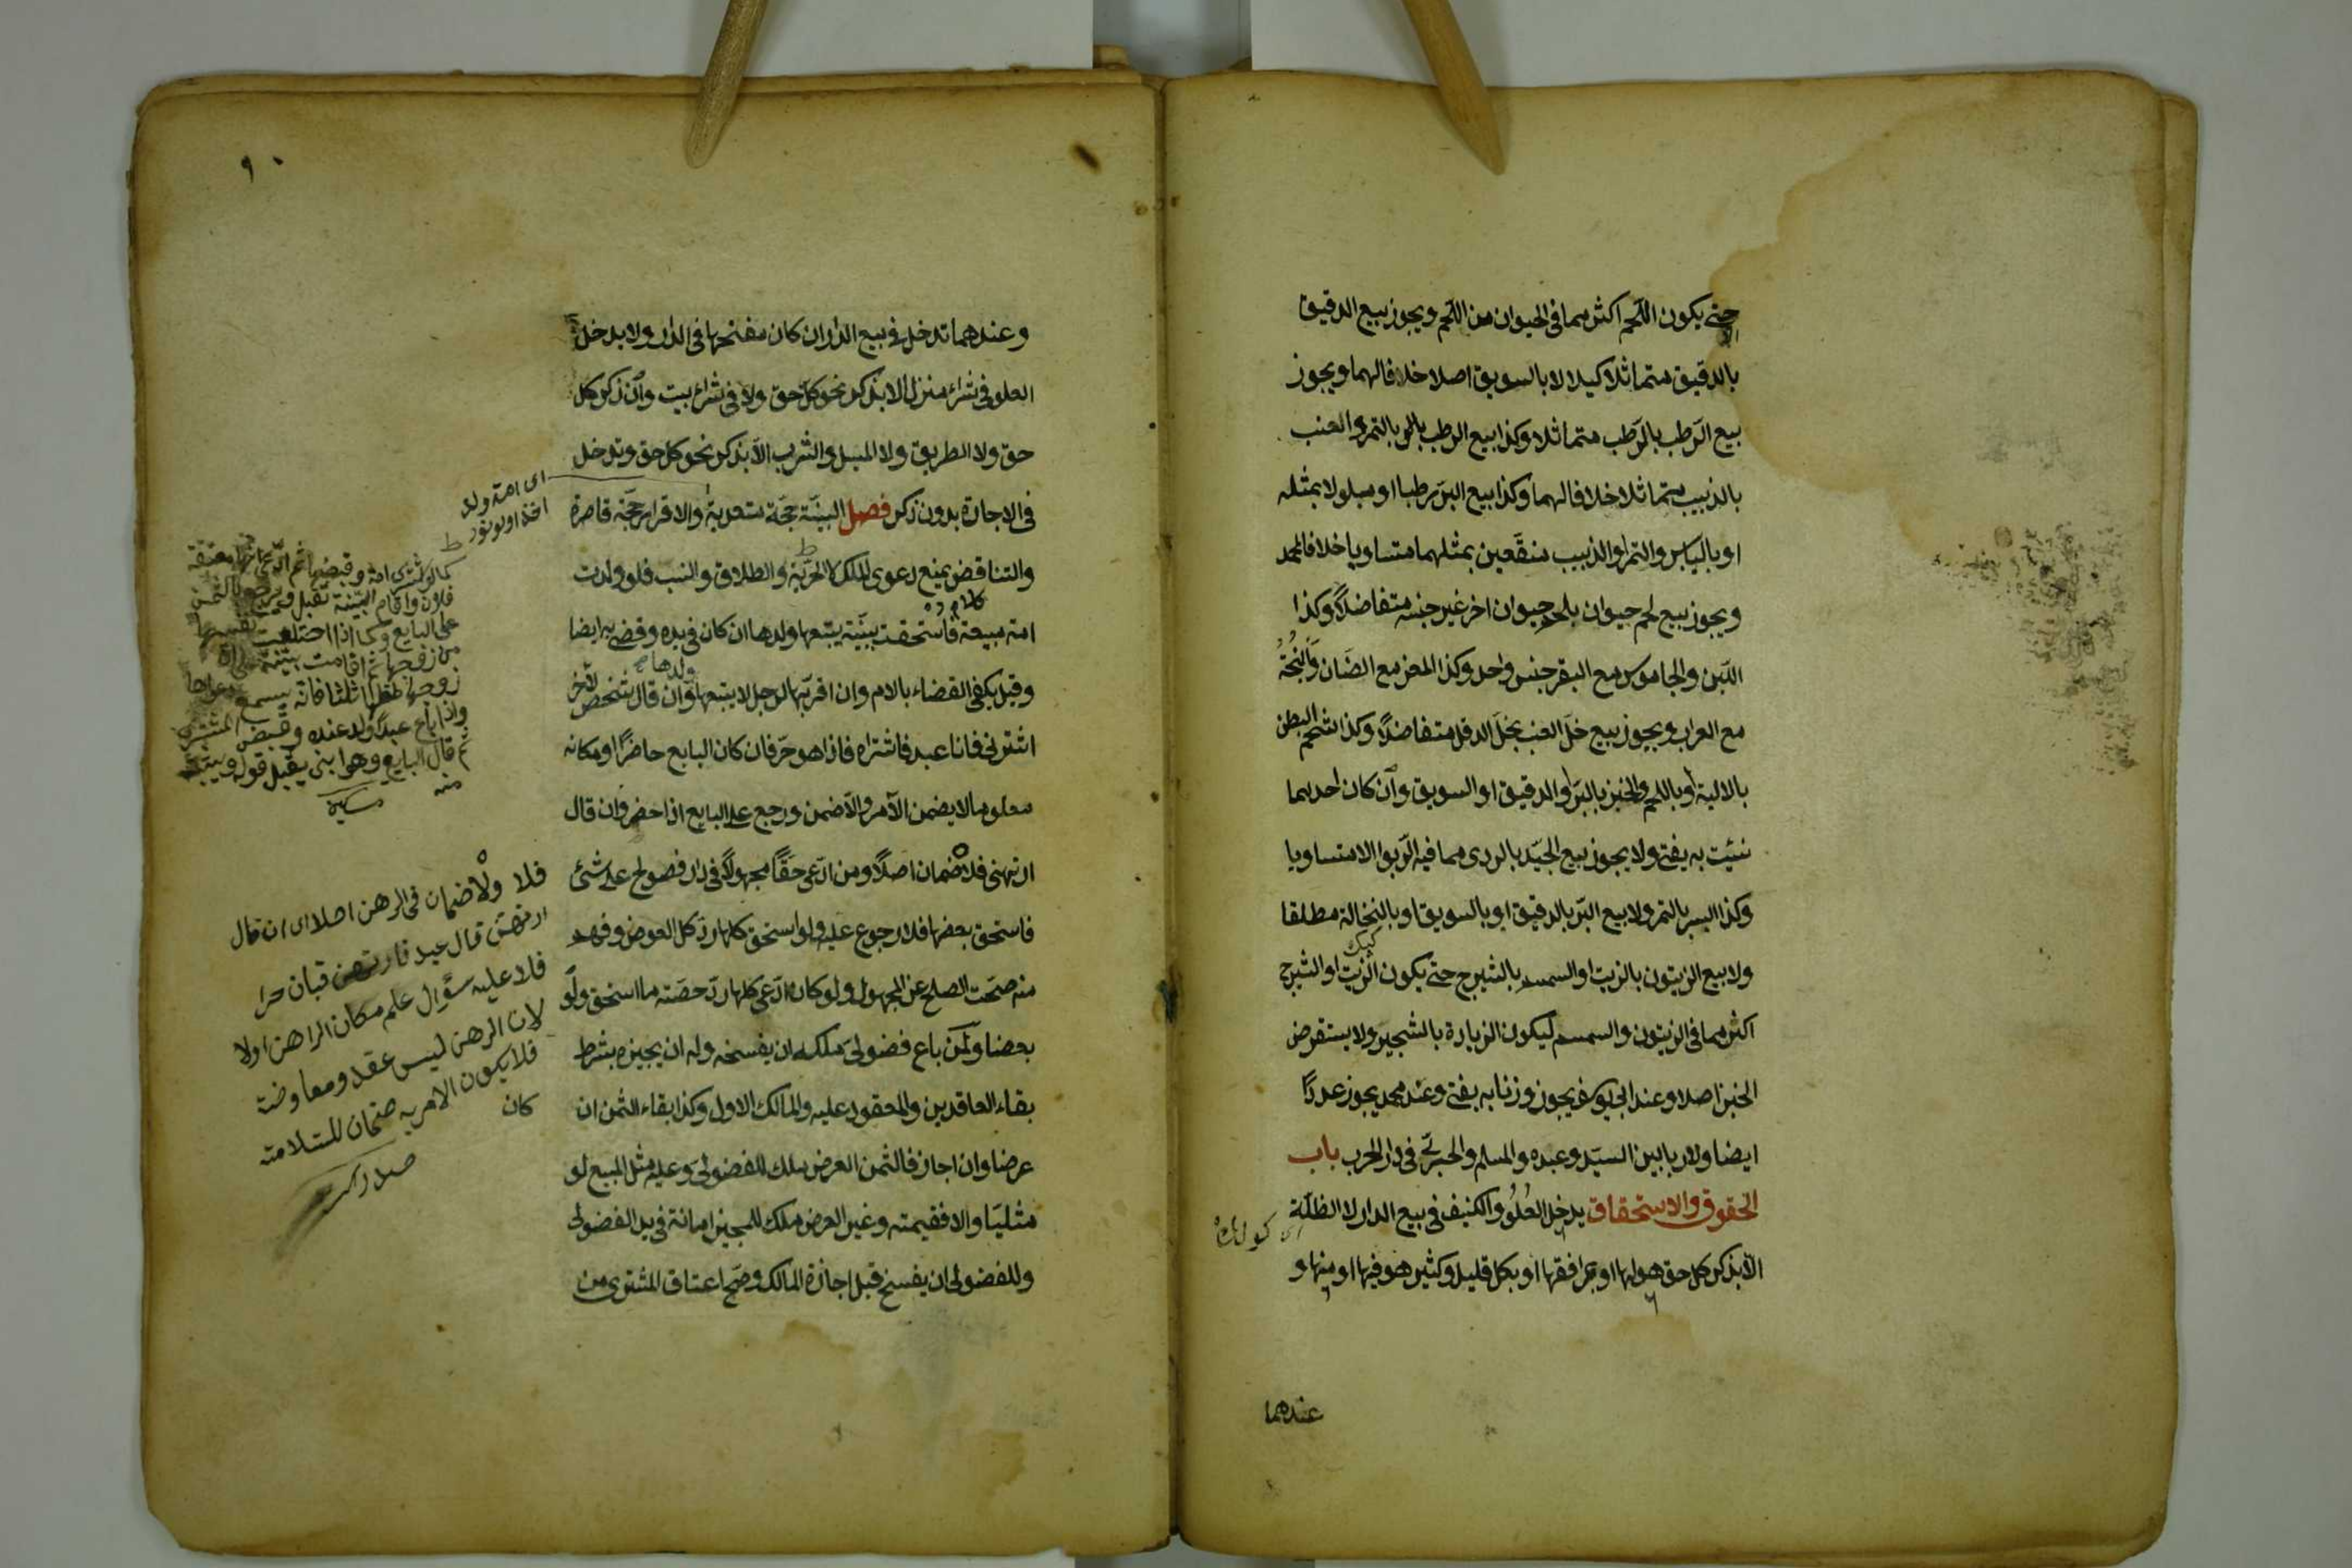 حتى يكون اللحم اكثر مما فى الحيوان من اللحم ويجوز بيع الدقيق
بالدقيق متماثلا كيلا لا بالسويق اصلا خلافا لهما ويجوز
بيع الرَطب بالرَطب متماثلا وكذا بيع الرطب بالتمر والعنب
بالزبيب متماثلا خلافا لهما وكذا بيع البرّ رطبا او مبلولا بمثله
او باليابس والتمر او الزبيب منقَعين بمثلهما متساويا خلافا لمحمد
ويجوز بيع لحم حيوان بلحم حيوان اخر غير جنسه متفاضلاً وكذا
اللّبن والجاموس مع البقر جنس واحد وكذا المعز مع الضَان والبُخْتُ
مع العراب ويجوز بيع خلّ العنب بخلّ الدقل متفاضلاً وكذا شحم البطن
بالالية او باللحم والخبز بالبرّ او الدقيق او السويق وان كان احدهما
نسيئت به يفتى ولا يجوز بيع الجيّد بالردى مما فيه الرّبوا الا متساويا
وكذا البسر بالتمر ولا بيع البّر بالدقيق او بالسويق او بالنخالة مطلقا
كبك
ولا بيع الزيتون بالزيت او السمسم بالشيرج حتى يكون الزيت او الشيرج
اكثر مما فى الزيتون والسمسم ليكون الزيادة بالثجير ولا يستقرض
الخبز اصلا وعند ابى يوسف يجوز وزنا به يفتى وعند محمد يجوز عددًا
ايضا ولا ربا بين السيّد وعبده والمسلم والحربّى فى دار الحرب باب
الحقوق والاستحقاق يدخل العُلُوُ والكنيف فى بيع الدار لا الظلّة
الاّ بذكر كل حق هو لها او بمرافقها او بكل قليل وكثير هو فيها او منها و
عندهما
٩٠
وعندهما تدخل فى بيع الدار ان كان مفتحها فى الدار ولا يدخل
العلو فى شراء منزل الا بذكر نحو كلّ حق ولا فى شراء بيت وان ذكر كل
حق ولا الطريق ولا المسيل والشرب الاّ بذكر نحو كل حق وتدخل
فى الاجارة بدون ذكر فصل البيّنة حجّة متعدية والاقرار حجّة قاصرة
والتناقض يمنع دعوى الملك لا الحريّة والطلاق والنسب فلو ولدت
امة مبيعة فاستحقت ببيّنة يتبعها ولدها ان كان فى يده وقضى به ايضا
ولدها صح
وقيل يكفى القضاء بالام وان اقر بها لرجل لا يتبعها وان قال شخص لاخر
اشترنى فانا عبد فاشتراه فاذا هو حرّ فان كان البايع حاضرًا او مكانه
معلوما لا يضمن الآمر والاّ ضمن ورجع على البايع اذا حضر وان قال
ارتهنى فلا ضمان اصلاً ومن ادّعى حقّاً مجهولاً فى دار فصولح على شئ
فاستحق بعضها فلا رجوع عليه ولو استحق كلها ردّ كل العوض وفهم
منه صحّت الصلح عن المجهول ولو كان ادّعى كلها ردّ حصّته ما استحق ولو
بعضا ولمن باع فضولىّ ملكه ان يفسخه وله ان يجيزه بشرط
بقاء العاقدين والمعقود عليه والمالك الاول وكذا بقاء الثمن ان
عرضا وان اجاز فالثمن العرض ملك للفضولىّ وعليه مثل المبيع لو
مثليّا والا فقيمته وغير العرض ملك للمجيز امانة فى يد الفضولى
وللفضولى ان يفسخ قبل اجازة المالك وصّح اعتاق المشترى من
اى امة ولد
كما لو اشترى امة وقبضها ثم ادّعى انها معتقة
فلان واقام البيّنة تقبل ويرجع بالثمن
على البايع وكما اذا اختلعت نفسها
من زوجها ثم اقامت بيّنة على ان
زوجها طلقها ثلثا فانّه يسمع دعواها
واذا باع عبدًا ولد عنده وقبض المشترى
ثم قال البايع وهو ابنى يقبل قوله
منه
فلا ولا ضمان فى الرهن اصلا اى ان قال
ارتهنى قال عبد فارتهن فبان حرا
فلا عليه سؤال علم مكان الراهن اولا
لان الرهن ليس عقد ومعاوضة
فلا يكون الامر به ضمان للسّلامة
كان